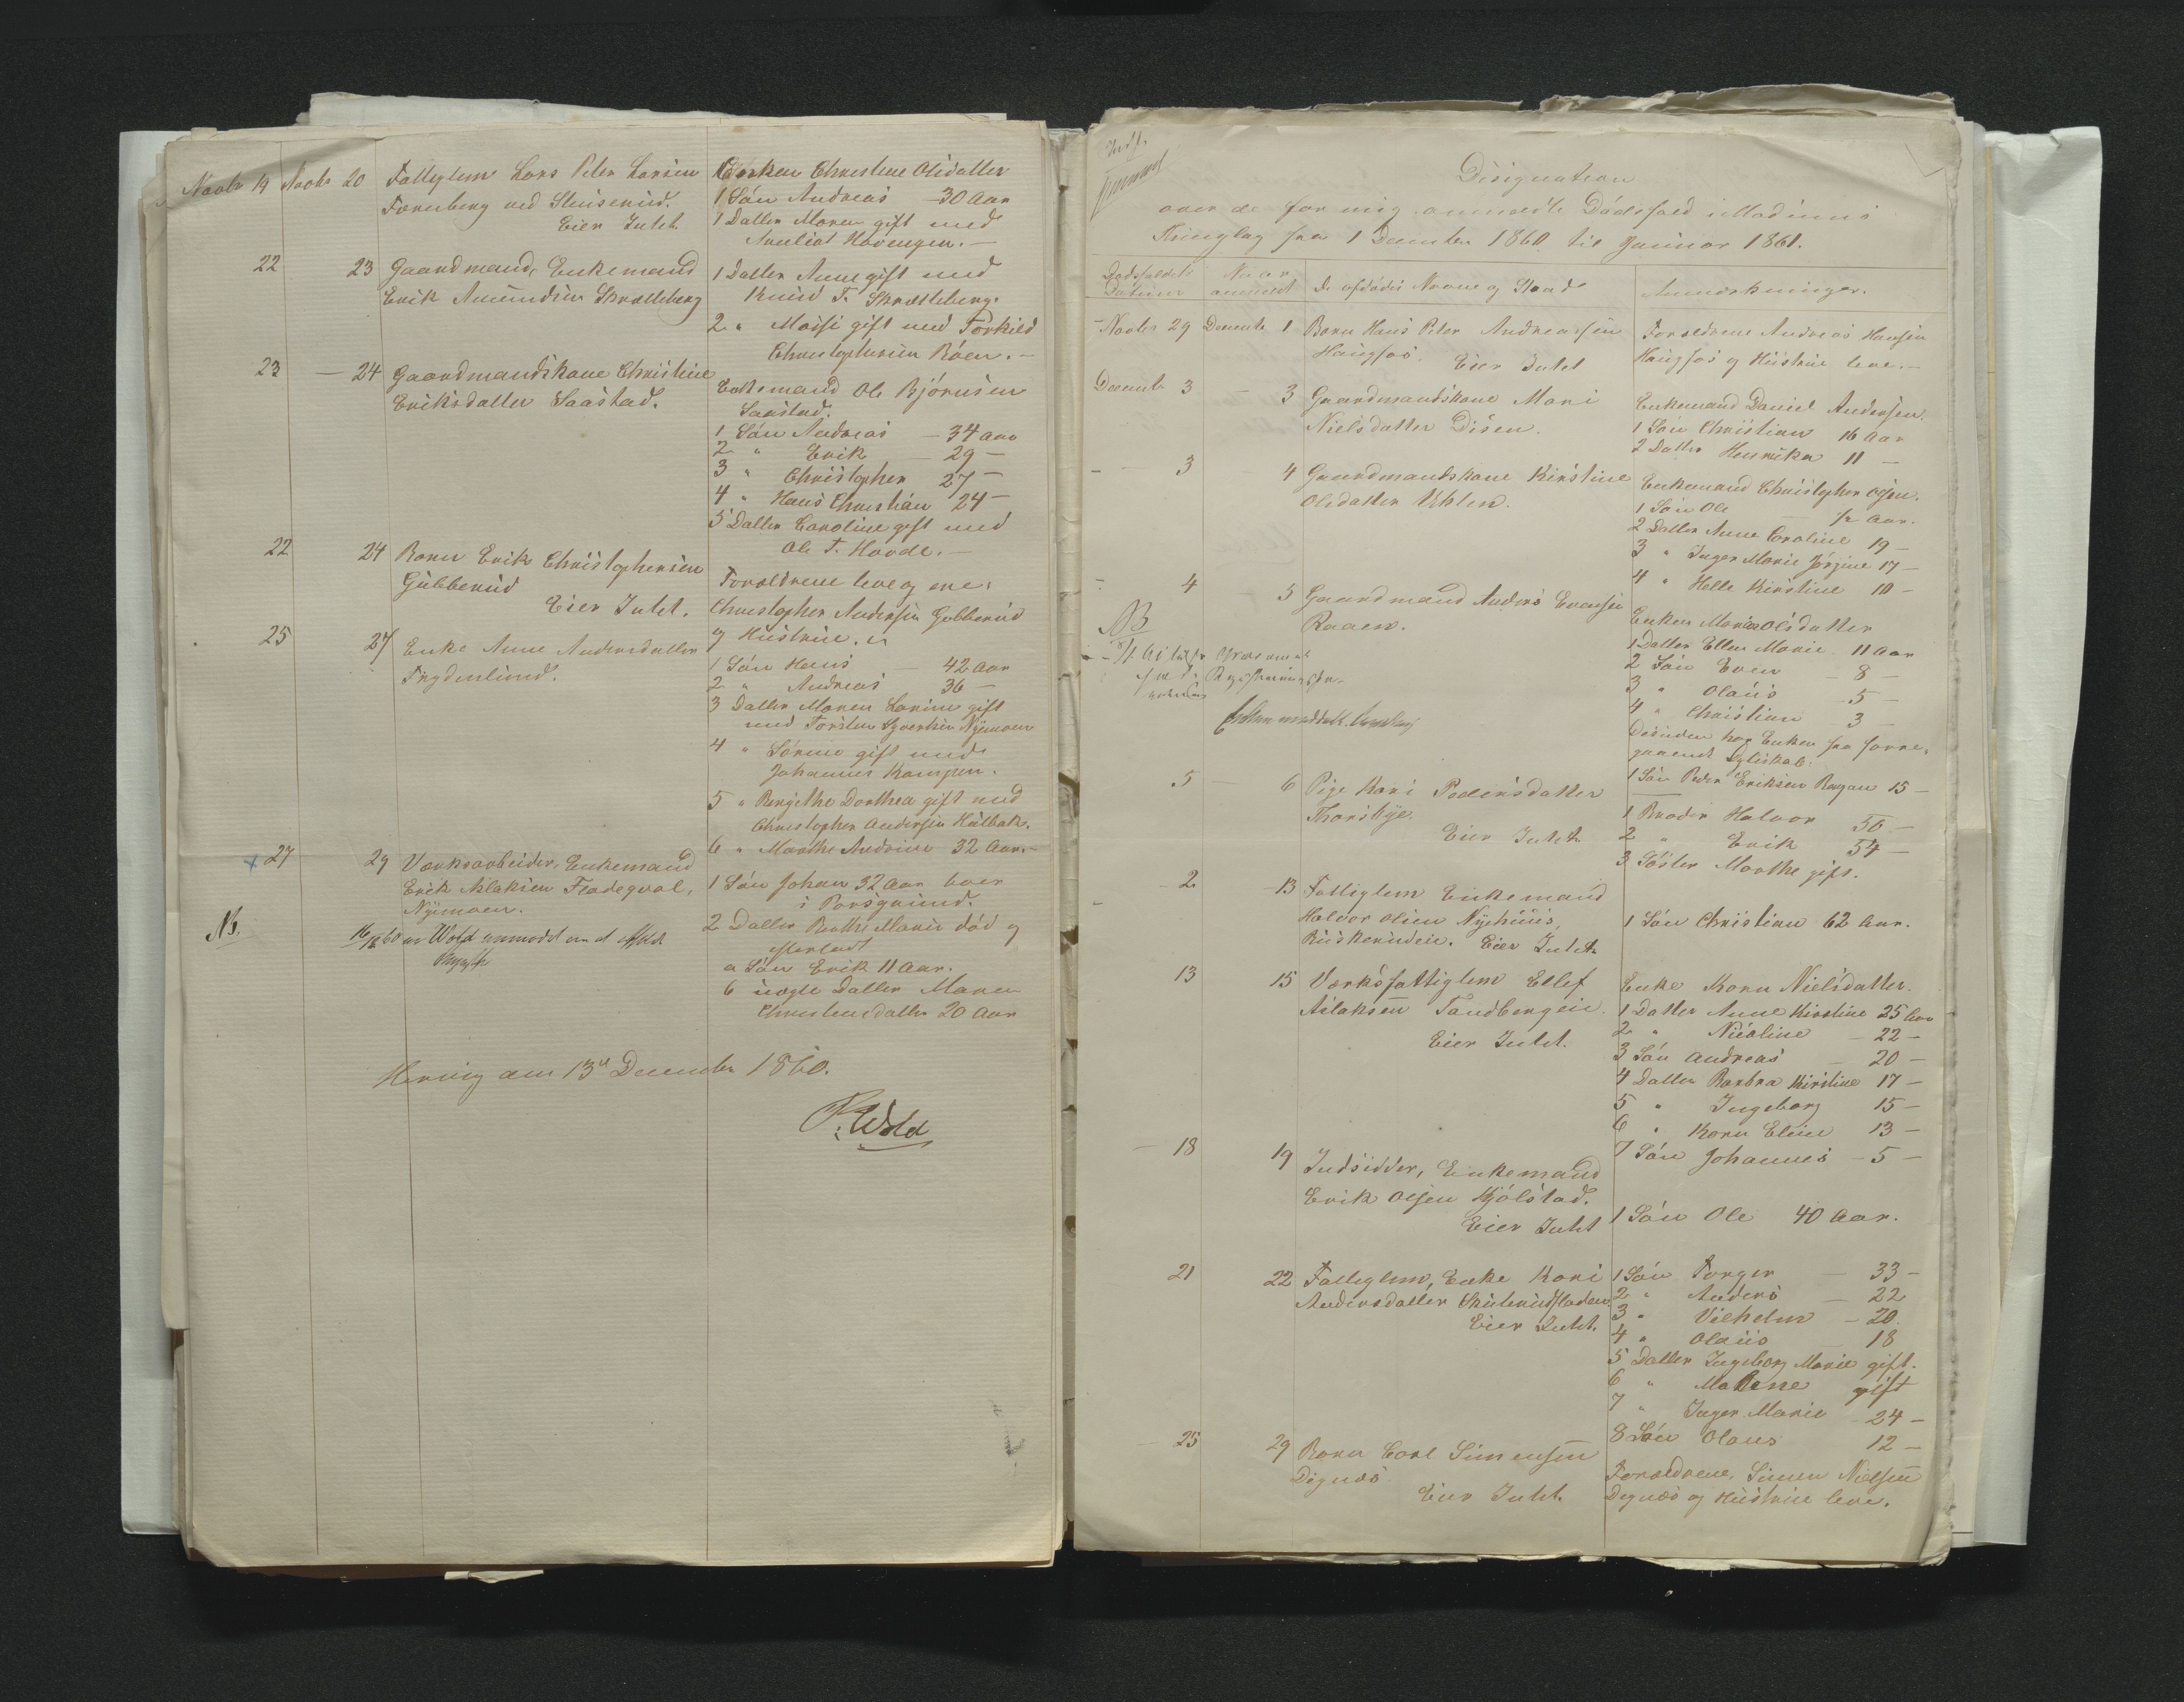 Novbr 19 Novbr 20 Fattiglem Lars Peter Larsen
Foruberg ved Stensrud.
Eier Intet
Enken Christine Olsdatter
1 Søn Andreas - 30 Aar
1 Datter Maren gift med
Hovengen. -
22 23 Gaardmand, Enkemand
Erik Amundsen Skrætteberg
1 Datter Anne gift med
Knud T. Skrætteberg.
2 " Maisi gift med Torkild
Christophersen Röen. -
23 - 24 Gaardmandskone Christine
Eriksdatter Saastad.
Enkemand Ole Bjørnsen
Saastad.
1 Søn Andreas - 34 Aar
2 " Erik - 29 -
3 " Christopher 27 -
4 " Hans Christian 24 -
5 Datter Caroline gift med
Ole T. Hovde.
22 24 Barn Erik Christophersen
Gubberud
Eier Intet.
Forældrene leve og ere:
Christopher Andersen Gubberud
og Hustrue.
25 27 Enke Anne Andersdatter
Frydenlund.
1 Søn Hans - 42 Aar
2 " Andreas 36 -
3 Datter Maren Larine gift
med Torsten Syvertsen Nymoen
4 " Sörine gift med
Johannes Kampen.
5 " Bergithe Dorthea gift med
Christopher Andersen Hulbak.
6 " Marthe Andrine 32 Aar. -
27 29 Værksarbeider, Enkemand
Erik Aslaksen Fladeqval,
Nymoen.
1 Søn Johan 32 Aar boer
i Porsgrund.
2 Datter Berthe Marie död og
efterladt
a Søn Erik 11 Aar.
b uægte Datter Maren
Christensdatter 20 Aar
Nb.
16/12 60 er Wold anmodet om at
Herwig den 13de December 1860.
P. Wold
Designation
over de for mig anmeldte Dödsfald i Modums
Thinglag fra 1 December 1860 til Januar 1861.
Dødsfaldets Datum
Naar anmeldt
De afdødes Navne og Stand
Anmærkninger.
- Novbr 29 Decembr 1 Barn Hans Peter Andreassen
Haugfos.
Eier Intet
Forældrene Andreas Hansen
Haugfos og Hustrue leve. -
Decembr 3 - 3 Gaardmandskone Mari
Nielsdatter Disen.
Enkemand Daniel Andersen
1 Søn Christian 16 Aar
2 Datter Henrikka 11 -
- 3 - 4 Gaardmandskone Kirstine
Olsdatter Uhlen.
Enkemand Christopher Olsen.
1 Søn Ole - 1/2 Aar.
2 Datter Anne Caroline 19 -
3 " Inger Marie Jörgine 17 -
4 " Helle Kirstine 10 -
- 4 - 5 Gaardmand Anders Evensen
Raaen.
Enken Maria Olsdatter
1 Datter Ellen Marie 11 Aar
2 Søn Even - 8 -
3 " Olaus - 5 -
4 " Christian 3 -
Desuden har Enken fra forre-
gaaende Egteskab:
1 Søn Peder Eriksen 15 -
NB
5 - 6 Pige Kari Pedersdatter
Thorsbye.
Eier Intet
1 Broder Halvor 56 -
2 " Erik 54 -
3 Söster Marthe gift.
- 2 - 13 Fattiglem Enkemand
Halvor Olsen Nyehuus,
Eier Intet
1 Søn Christian 62 Aar.
13 15 Værksfattiglem Ellef
Aslaksen Tandbergeie.
Eier Intet.
Enke Karn Nielsdatter.
1 Datter Anne Kirstine 25 Aar
2 " Nicoline - 22 -
3 Søn Andreas - 20 -
4 Datter Barbra Kirstine 17 -
5 " Ingeborg 15 -
6 " Karn Eline 13 -
7 Søn Johannes - 5 -
- 18 19 Indsidder, Enkemand
Erik Olsen Kjölstad.
Eier Intet
1 Søn Ole 40 Aar.
21 22 Fattiglem, Enke Kari
Andersdatter
Eier Intet.
1 Søn Torger - 33 -
2 " Anders - 22
3 " Vilhelm - 20
4 " Olaus - 18
5 Datter Ingeborg Marie gift.
6 " Malene gift
7 " Inger Marie 24 -
8 Søn Olaus 12 -
- 25 29 Barn Carl Simensen
Dignæs
Eier Intet.
Forældrene, Simen Nielsen
Dignæs og Hustrue leve.